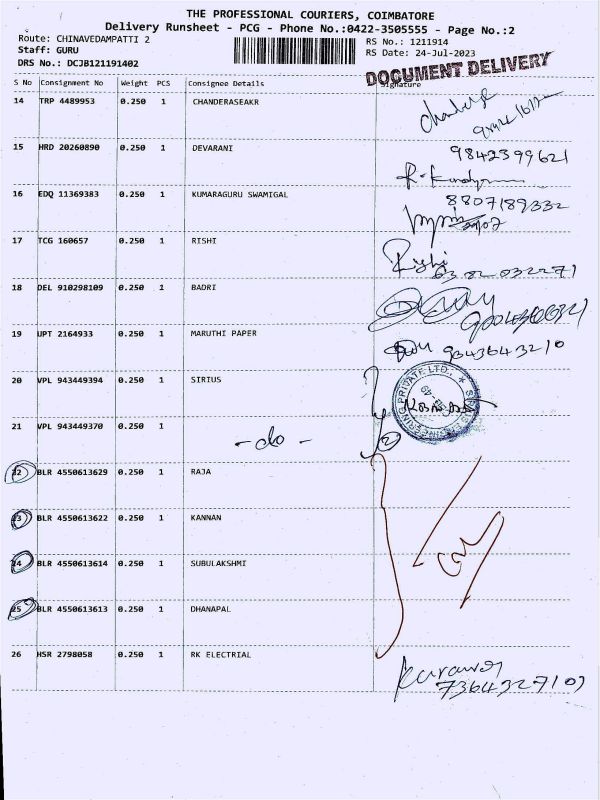 THE PROFESSIONAL COURIERS, COIMBATORE
Delivery Runsheet - PCG - Phone No.:0422-3505555 - Page No.:2
Route: CHINAVEDAMPATTI 2 RS No.: 1211914
Staff: GURU RS Date: 24-Jul-2023
DRS No.: DCJB121191402 DOCUMENT DELIVERY
S No Consignment No Weight PCS Consignee Details Signature
14 TRP 4489953 0.250 1 CHANDERASEAKR
15 HRD 20260890 0.250 1 DEVARANI 9842399621
16 EDQ 11369383 0.250 1 KUMARAGURU SWAMIGAL 8807189332
17 TCG 160657 0.250 1 RISHI Rishi
18 DEL 910298109 0.250 1 BADRI
19 UPT 2164933 0.250 1 MARUTHI PAPER 9843643210
20 VPL 943449394 0.250 1 SIRIUS
21 VPL 943449370 0.250 1 - do -
22 BLR 4550613629 0.250 1 RAJA
23 BLR 4550613622 0.250 1 KANNAN
24 BLR 4550613614 0.250 1 SUBULAKSHMI
25 BLR 4550613613 0.250 1 DHANAPAL
26 HSR 2798058 0.250 1 RK ELECTRIAL